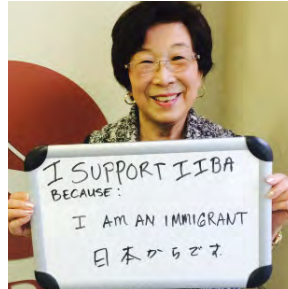 I SUPPORT IIBA
BECAUSE:
I AM AN IMMIGRANT
日本からです